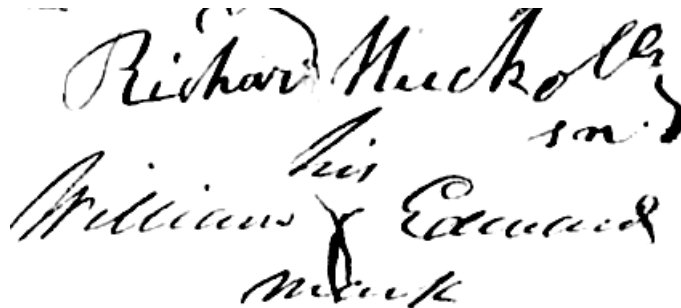 Richard Nuckolls
sn.
his
William X Edmund
mark